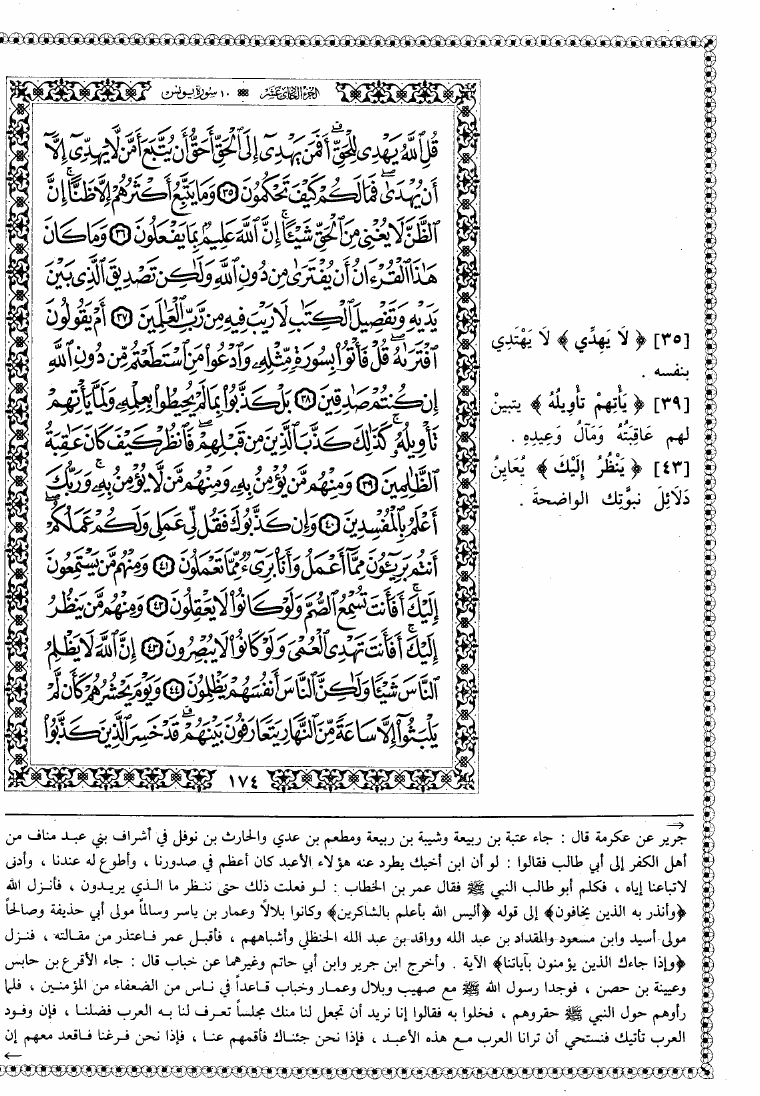 الجزء الحادي عشر ١٠ سورة يونس
قُلِ ٱللَّهُ يَهْدِى لِلْحَقِّ ۗ أَفَمَن يَهْدِىٓ إِلَى ٱلْحَقِّ أَحَقُّ أَن يُتَّبَعَ أَمَّن لَّا يَهِدِّىٓ إِلَّآ
أَن يُهْدَىٰ ۖ فَمَا لَكُمْ كَيْفَ تَحْكُمُونَ ٣٥ وَمَا يَتَّبِعُ أَكْثَرُهُمْ إِلَّا ظَنًّا ۚ إِنَّ
ٱلظَّنَّ لَا يُغْنِى مِنَ ٱلْحَقِّ شَيْـًٔا ۚ إِنَّ ٱللَّهَ عَلِيمٌۢ بِمَا يَفْعَلُونَ ٣٦ وَمَا كَانَ
هَـٰذَا ٱلْقُرْءَانُ أَن يُفْتَرَىٰ مِن دُونِ ٱللَّهِ وَلَـٰكِن تَصْدِيقَ ٱلَّذِى بَيْنَ
يَدَيْهِ وَتَفْصِيلَ ٱلْكِتَـٰبِ لَا رَيْبَ فِيهِ مِن رَّبِّ ٱلْعَـٰلَمِينَ ٣٧ أَمْ يَقُولُونَ
ٱفْتَرَىٰهُ ۖ قُلْ فَأْتُوا۟ بِسُورَةٍ مِّثْلِهِۦ وَٱدْعُوا۟ مَنِ ٱسْتَطَعْتُم مِّن دُونِ ٱللَّهِ
إِن كُنتُمْ صَـٰدِقِينَ ٣٨ بَلْ كَذَّبُوا۟ بِمَا لَمْ يُحِيطُوا۟ بِعِلْمِهِۦ وَلَمَّا يَأْتِهِمْ
تَأْوِيلُهُۥ ۚ كَذَٰلِكَ كَذَّبَ ٱلَّذِينَ مِن قَبْلِهِمْ ۖ فَٱنظُرْ كَيْفَ كَانَ عَـٰقِبَةُ
ٱلظَّـٰلِمِينَ ٣٩ وَمِنْهُم مَّن يُؤْمِنُ بِهِۦ وَمِنْهُم مَّن لَّا يُؤْمِنُ بِهِۦ ۚ وَرَبُّكَ
أَعْلَمُ بِٱلْمُفْسِدِينَ ٤٠ وَإِن كَذَّبُوكَ فَقُل لِّى عَمَلِى وَلَكُمْ عَمَلُكُمْ ۖ
أَنتُم بَرِيٓـُٔونَ مِمَّآ أَعْمَلُ وَأَنَا۠ بَرِىٓءٌ مِّمَّا تَعْمَلُونَ ٤١ وَمِنْهُم مَّن يَسْتَمِعُونَ
إِلَيْكَ ۚ أَفَأَنتَ تُسْمِعُ ٱلصُّمَّ وَلَوْ كَانُوا۟ لَا يَعْقِلُونَ ٤٢ وَمِنْهُم مَّن يَنظُرُ
إِلَيْكَ ۚ أَفَأَنتَ تَهْدِى ٱلْعُمْىَ وَلَوْ كَانُوا۟ لَا يُبْصِرُونَ ٤٣ إِنَّ ٱللَّهَ لَا يَظْلِمُ
ٱلنَّاسَ شَيْـًٔا وَلَـٰكِنَّ ٱلنَّاسَ أَنفُسَهُمْ يَظْلِمُونَ ٤٤ وَيَوْمَ يَحْشُرُهُمْ كَأَن لَّمْ
يَلْبَثُوٓا۟ إِلَّا سَاعَةً مِّنَ ٱلنَّهَارِ يَتَعَارَفُونَ بَيْنَهُمْ ۚ قَدْ خَسِرَ ٱلَّذِينَ كَذَّبُوا۟
١٧٤
[٣٥] ﴿ لَا يَهِدِّي ﴾ لَا يَهْتَدِي
بنفسه .
[٣٩] ﴿ يَأْتِهِمْ تَأْوِيلُهُ ﴾ يتبينْ
لهم عَاقِبَتُهُ وَمَآلُ وَعِيدِهِ .
[٤٣] ﴿ يَنْظُرُ إِلَيْكَ ﴾ يُعَايِنُ
دَلَائِلَ نبوَّتِك الواضحةَ .
→
جرير عن عكرمة قال : جاء عتبة بن ربيعة وشيبة بن ربيعة ومطعم بن عدي والحارث بن نوفل في أشراف بني عبد مناف من
أهل الكفر إلى أبي طالب فقالوا : لو أن ابن أخيك يطرد عنه هؤلاء الأعبد كان أعظم في صدورنا ، وأطوع له عندنا ، وأدنى
لاتباعنا إياه ، فكلم أبو طالب النبي ﷺ فقال عمر بن الخطاب : لو فعلت ذلك حتى ننظر ما الذي يريدون ، فأنزل الله
﴿وأنذر به الذين يخافون﴾ إلى قوله ﴿أليس الله بأعلم بالشاكرين﴾ وكانوا بلالاً وعمار بن ياسر وسالماً مولى أبي حذيفة وصالحاً
مولى أسيد وابن مسعود والمقداد بن عبد الله وواقد بن عبد الله الحنظلي وأشباههم ، فأقبل عمر فاعتذر من مقالته ، فنزل
﴿وإذا جاءك الذين يؤمنون بآياتنا﴾ الآية . وأخرج ابن جرير وابن أبي حاتم وغيرهما عن خباب قال : جاء الأقرع بن حابس
وعيينة بن حصن ، فوجدا رسول الله ﷺ مع صهيب وبلال وعمار وخباب قاعداً في ناس من الضعفاء من المؤمنين ، فلما
رأوهم حول النبي ﷺ حقروهم ، فخلوا به فقالوا إنا نريد أن تجعل لنا منك مجلساً تعرف لنا به العرب فضلنا ، فإن وفود
العرب تأتيك فنستحي أن ترانا العرب مع هذه الأعبد ، فإذا نحن جئناك فأقمهم عنا ، فإذا نحن فرغنا فاقعد معهم إن
←